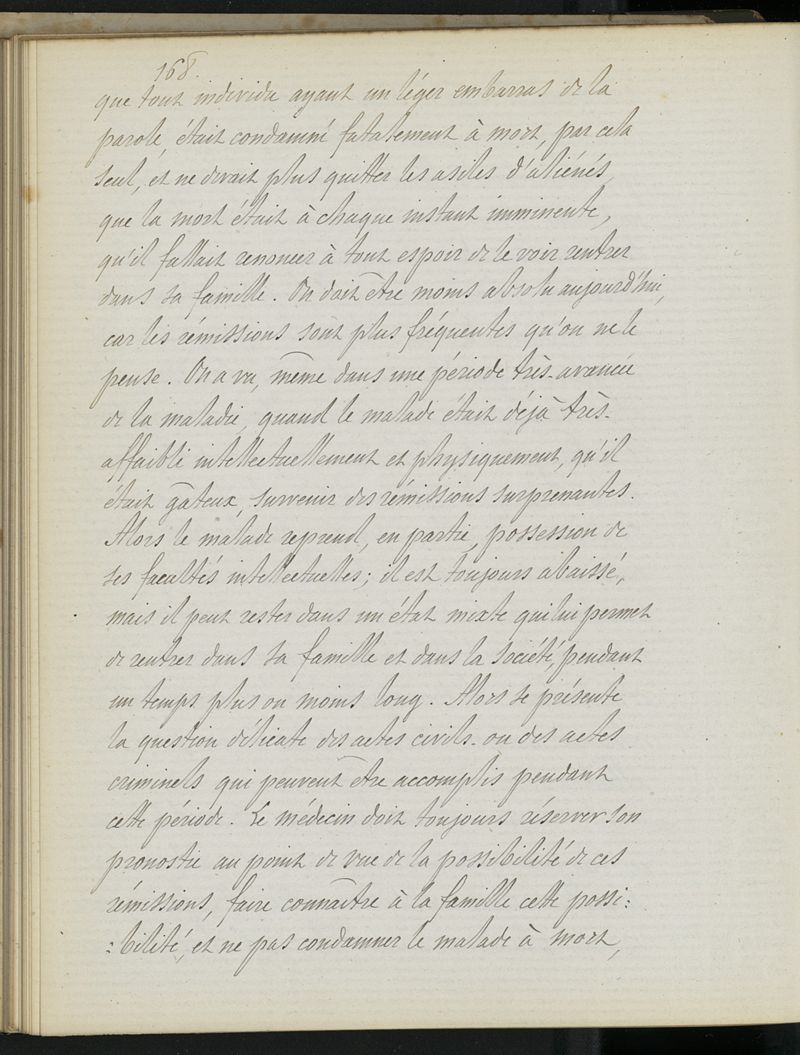 168.
que tout individu ayant un léger embarras de la
parole, était condamné fatalement à mort, par cela
seul, et ne devait plus quitter les asiles d'aliénés,
que la mort était à chaque instant imminente,
qu'il fallait renoncer à tout espoir de le voir rentrer
dans sa famille. On doit être moins absolu aujourd'hui,
car les rémissions sont plus fréquentes qu'on ne le
pense. On a vu, même dans une période très-avancée
de la maladie, quand le malade était déjà très-
affaibli intellectuellement et physiquement, qu'il
était gâteux, survenir des rémissions surprenantes.
Alors le malade reprend, en partie, possession de
ses facultés intellectuelles; il est toujours abaissé,
mais il peut rester dans un état mixte qui lui permet
de rentrer dans sa famille et dans la société, pendant
un temps plus ou moins long. Alors se présente
la question délicate des actes civils ou des actes
criminels qui peuvent être accomplis pendant
cette période. Le médecin doit toujours réserver son
pronostic au point de vue de la possibilité de ces
rémissions, faire connaître à la famille cette possi:
:bilité, et ne pas condamner le malade à mort,